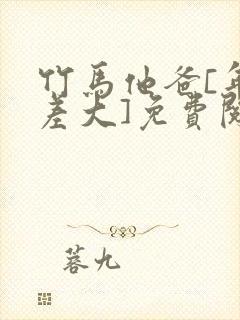 竹馬他爸[年
差大]免費閱
蓉九